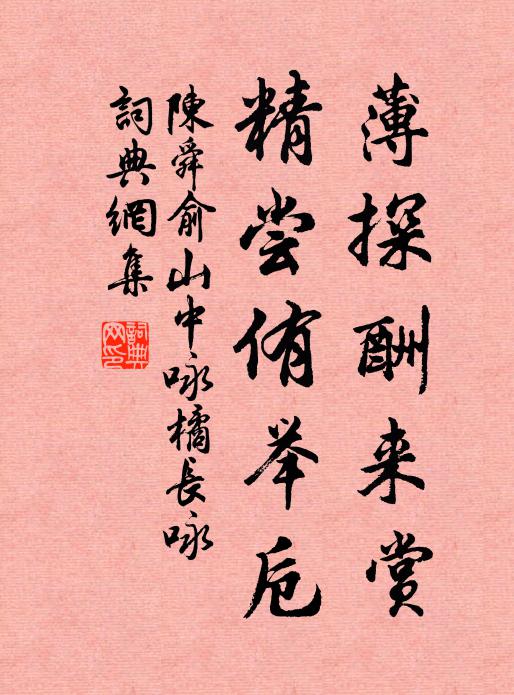 薄探酬来赏
精尝侑举卮
陳舜俞山中咏橘長咏
詞典網集
詞典网印